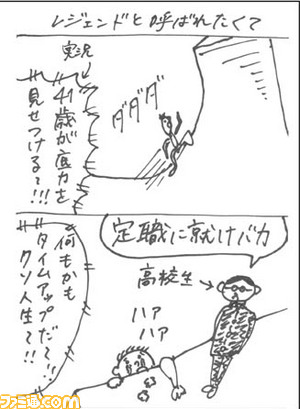 レジェンドと呼ばれたくて
実況
41歳が底力を
見せつけるて!!!
ダダダ
定職に就けバカ
高校生
ハア
ハア
何もかも
タイムアップだて!!
クソ人生て!!
ファミ通.com